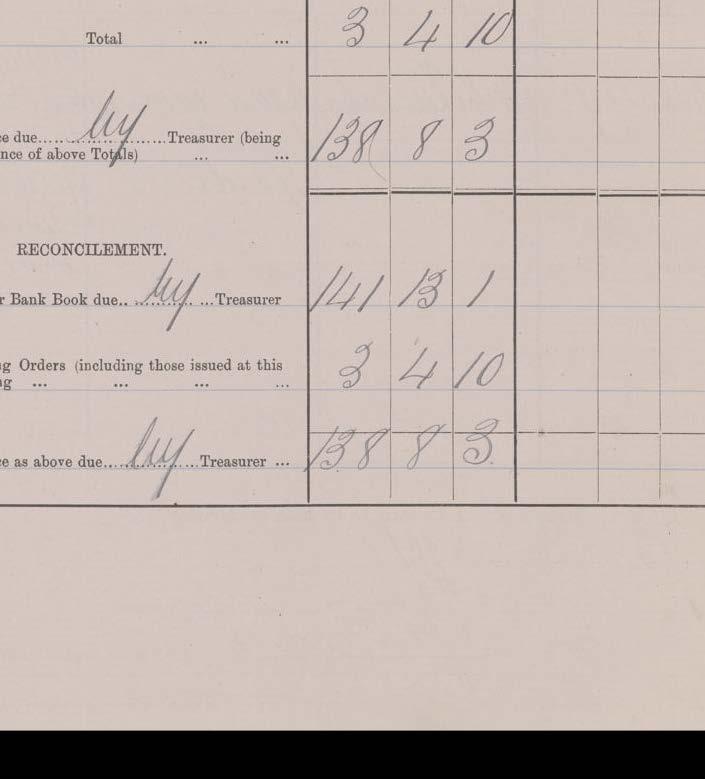 Total ... ... 3 4 10
ce due..... by ......Treasurer (being
nce of above Totals) ... ... 138 8 3
RECONCILEMENT.
r Bank Book due.. by ...Treasurer 141 13 1
g Orders (including those issued at this
g ... ... ... ... 3 4 10
ce as above due.... by ....Treasurer ... 138 8 3